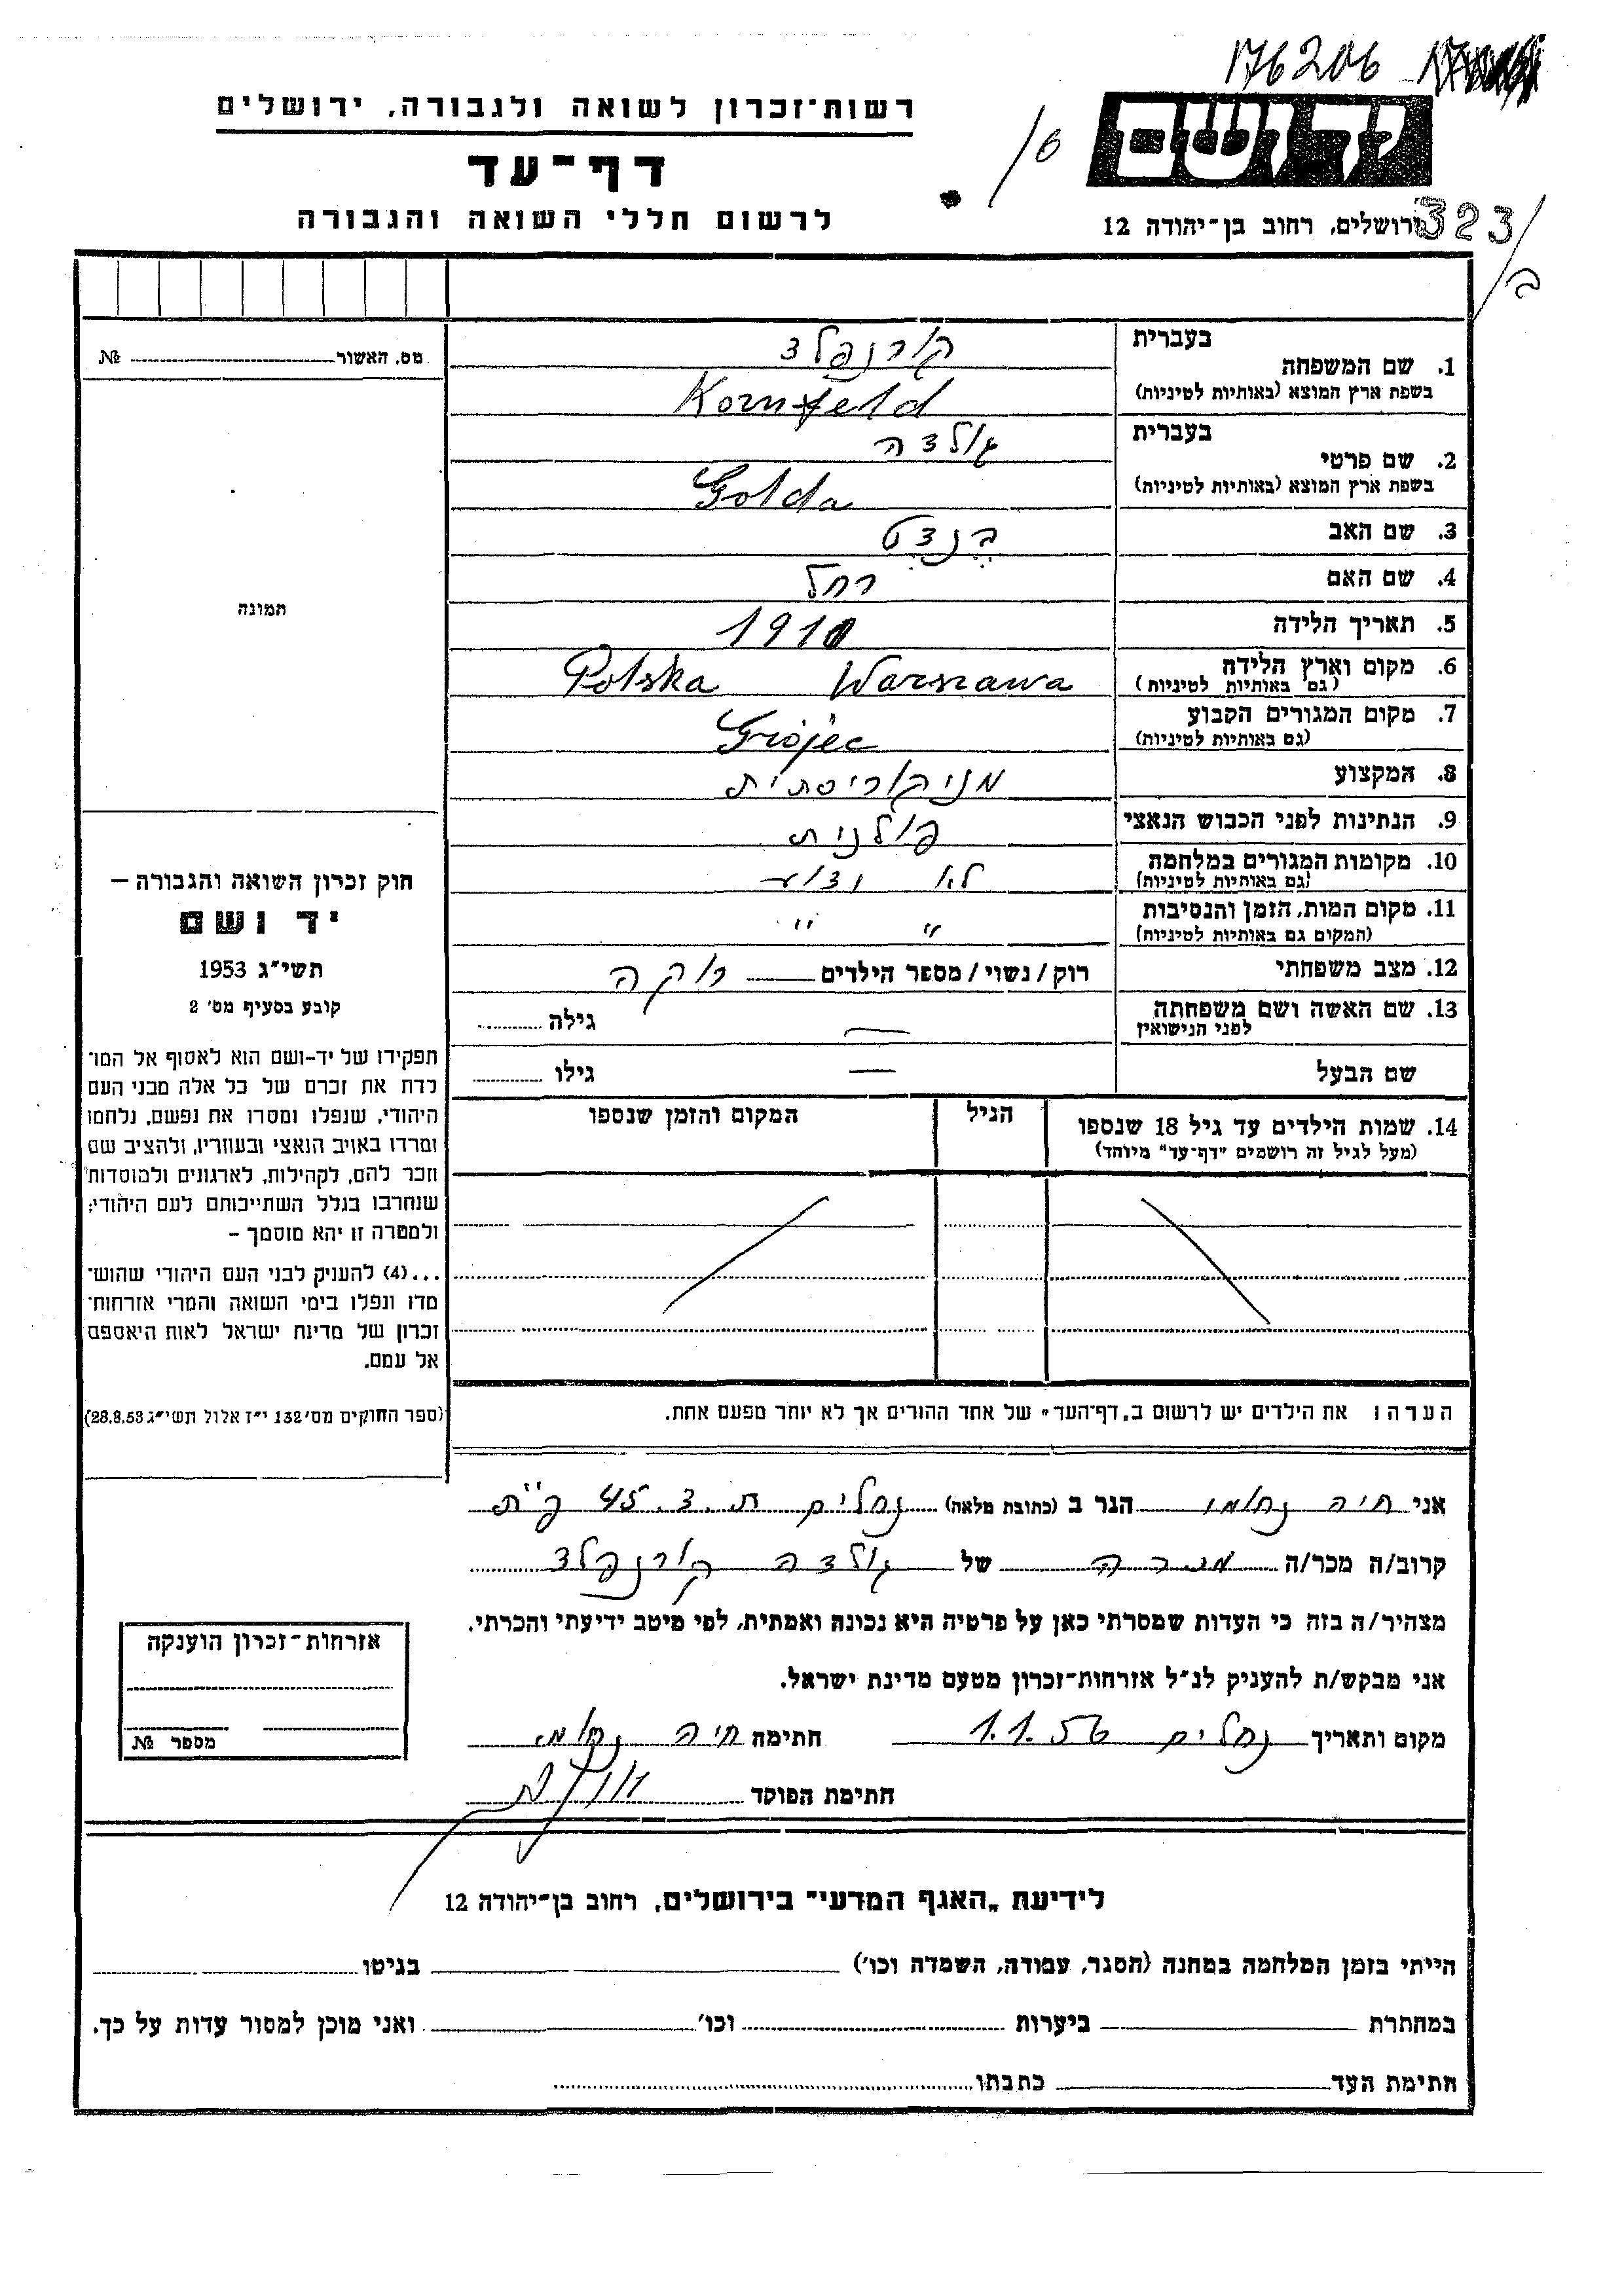 176206
רשות־זכרון לשואה ולגבורה, ירושלים
ידושם
6/
דף־עד
לרשום חללי השואה והגבורה
ירושלים, רחוב בן־יהודה 12
323/ב
מס. האשור № 
בעברית קורנפלד
1. שם המשפחה
בשפת ארץ המוצא (באותיות לטיניות) Kornfeld
בעברית גולדה
2. שם פרטי
בשפת ארץ המוצא (באותיות לטיניות) Golda
3. שם האב בנדט
4. שם האם רחל
5. תאריך הלידה 1910
6. מקום וארץ הלידה Warszawa Polska
(גם באותיות לטיניות)
7. מקום המגורים הקבוע Grójec
(גם באותיות לטיניות)
8. המקצוע מניקוריסתית
9. הנתינות לפני הכבוש הנאצי פולנית
10. מקומות המגורים במלחמה לא ידוע
(גם באותיות לטיניות)
11. מקום המות, הזמן והנסיבות " "
(המקום גם באותיות לטיניות)
12. מצב משפחתי רוק/נשוי/מספר הילדים רוקה
13. שם האשה ושם משפחתה — גילה
לפני הנישואין
שם הבעל — גילו
14. שמות הילדים עד גיל 18 שנספו הגיל המקום והזמן שנספו
(מעל לגיל זה רושמים "דף־עד" מיוחד)
הערה: את הילדים יש לרשום ב„דף־העד" של אחד ההורים אך לא יותר מפעם אחת.
תמונה
חוק זכרון השואה והגבורה —
יד ושם
תשי"ג 1953
קובע בסעיף מס' 2
תפקידו של יד-ושם הוא לאסוף אל המו־
לדת את זכרם של כל אלה מבני העם
היהודי, שנפלו ומסרו את נפשם, נלחמו
ומרדו באויב הנאצי ובעוזריו, ולהציב שם
וזכר להם, לקהילות, לארגונים ולמוסדות
שנחרבו בגלל השתייכותם לעם היהודי;
ולמטרה זו יהא מוסמך –
...(4) להעניק לבני העם היהודי שהוש־
מדו ונפלו בימי השואה והמרי אזרחות־
זכרון של מדינת ישראל לאות היאספם
אל עמם.
(ספר החוקים מס' 132 י"ז אלול תשי"ג 28.8.53)
אני חיה נחומי הגר ב (כתובת מלאה) נחלים ת.ד. 45 פ"ת
קרוב/ה מכר/ה מכרה של גולדה קורנפלד
מצהיר/ה בזה כי העדות שמסרתי כאן על פרטיה היא נכונה ואמתית, לפי מיטב ידיעתי והכרתי.
אני מבקש/ת להעניק לנ"ל אזרחות־זכרון מטעם מדינת ישראל.
מקום ותאריך נחלים 1.1.56 חתימה חיה נחומי
חתימת הפוקד
אזרחות־זכרון הוענקה
מספר №
לידיעת „האגף המדעי" בירושלים, רחוב בן־יהודה 12
הייתי בזמן המלחמה במחנה (הסגר, עבודה, השמדה וכו') בגיטו
במחתרת ביערות וכו' ואני מוכן למסור עדות על כך.
חתימת העד כתבתו